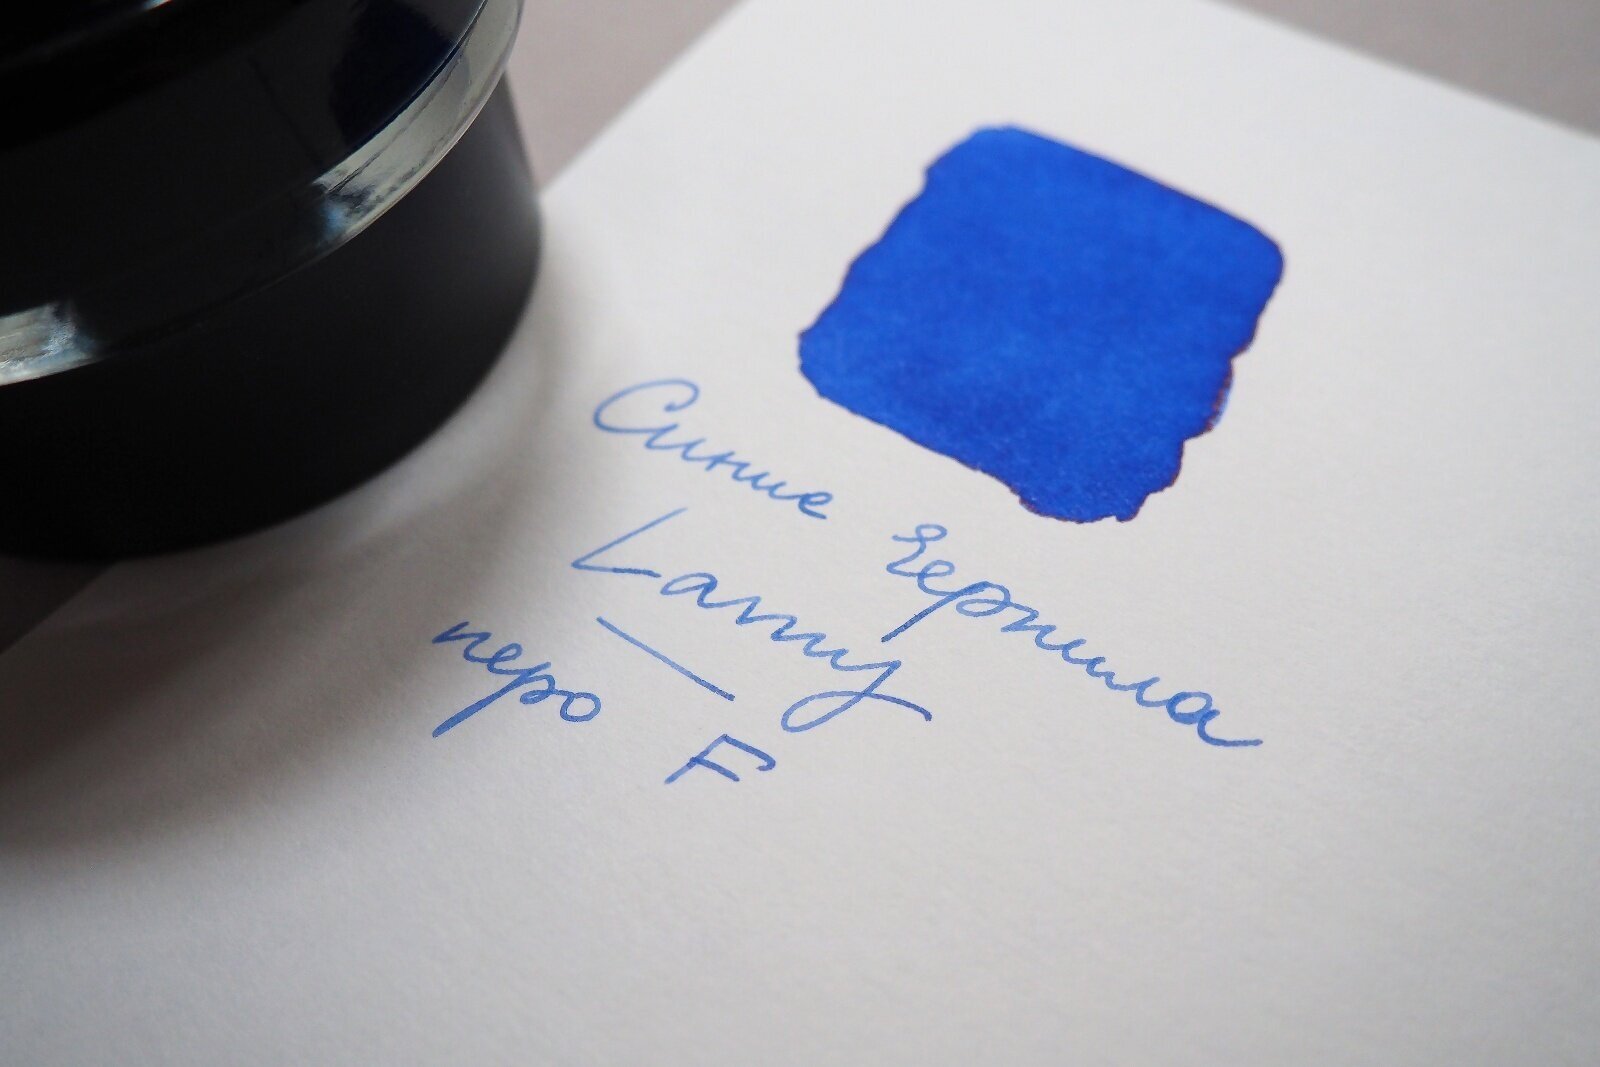 Синие чернила
Lamy
перо F